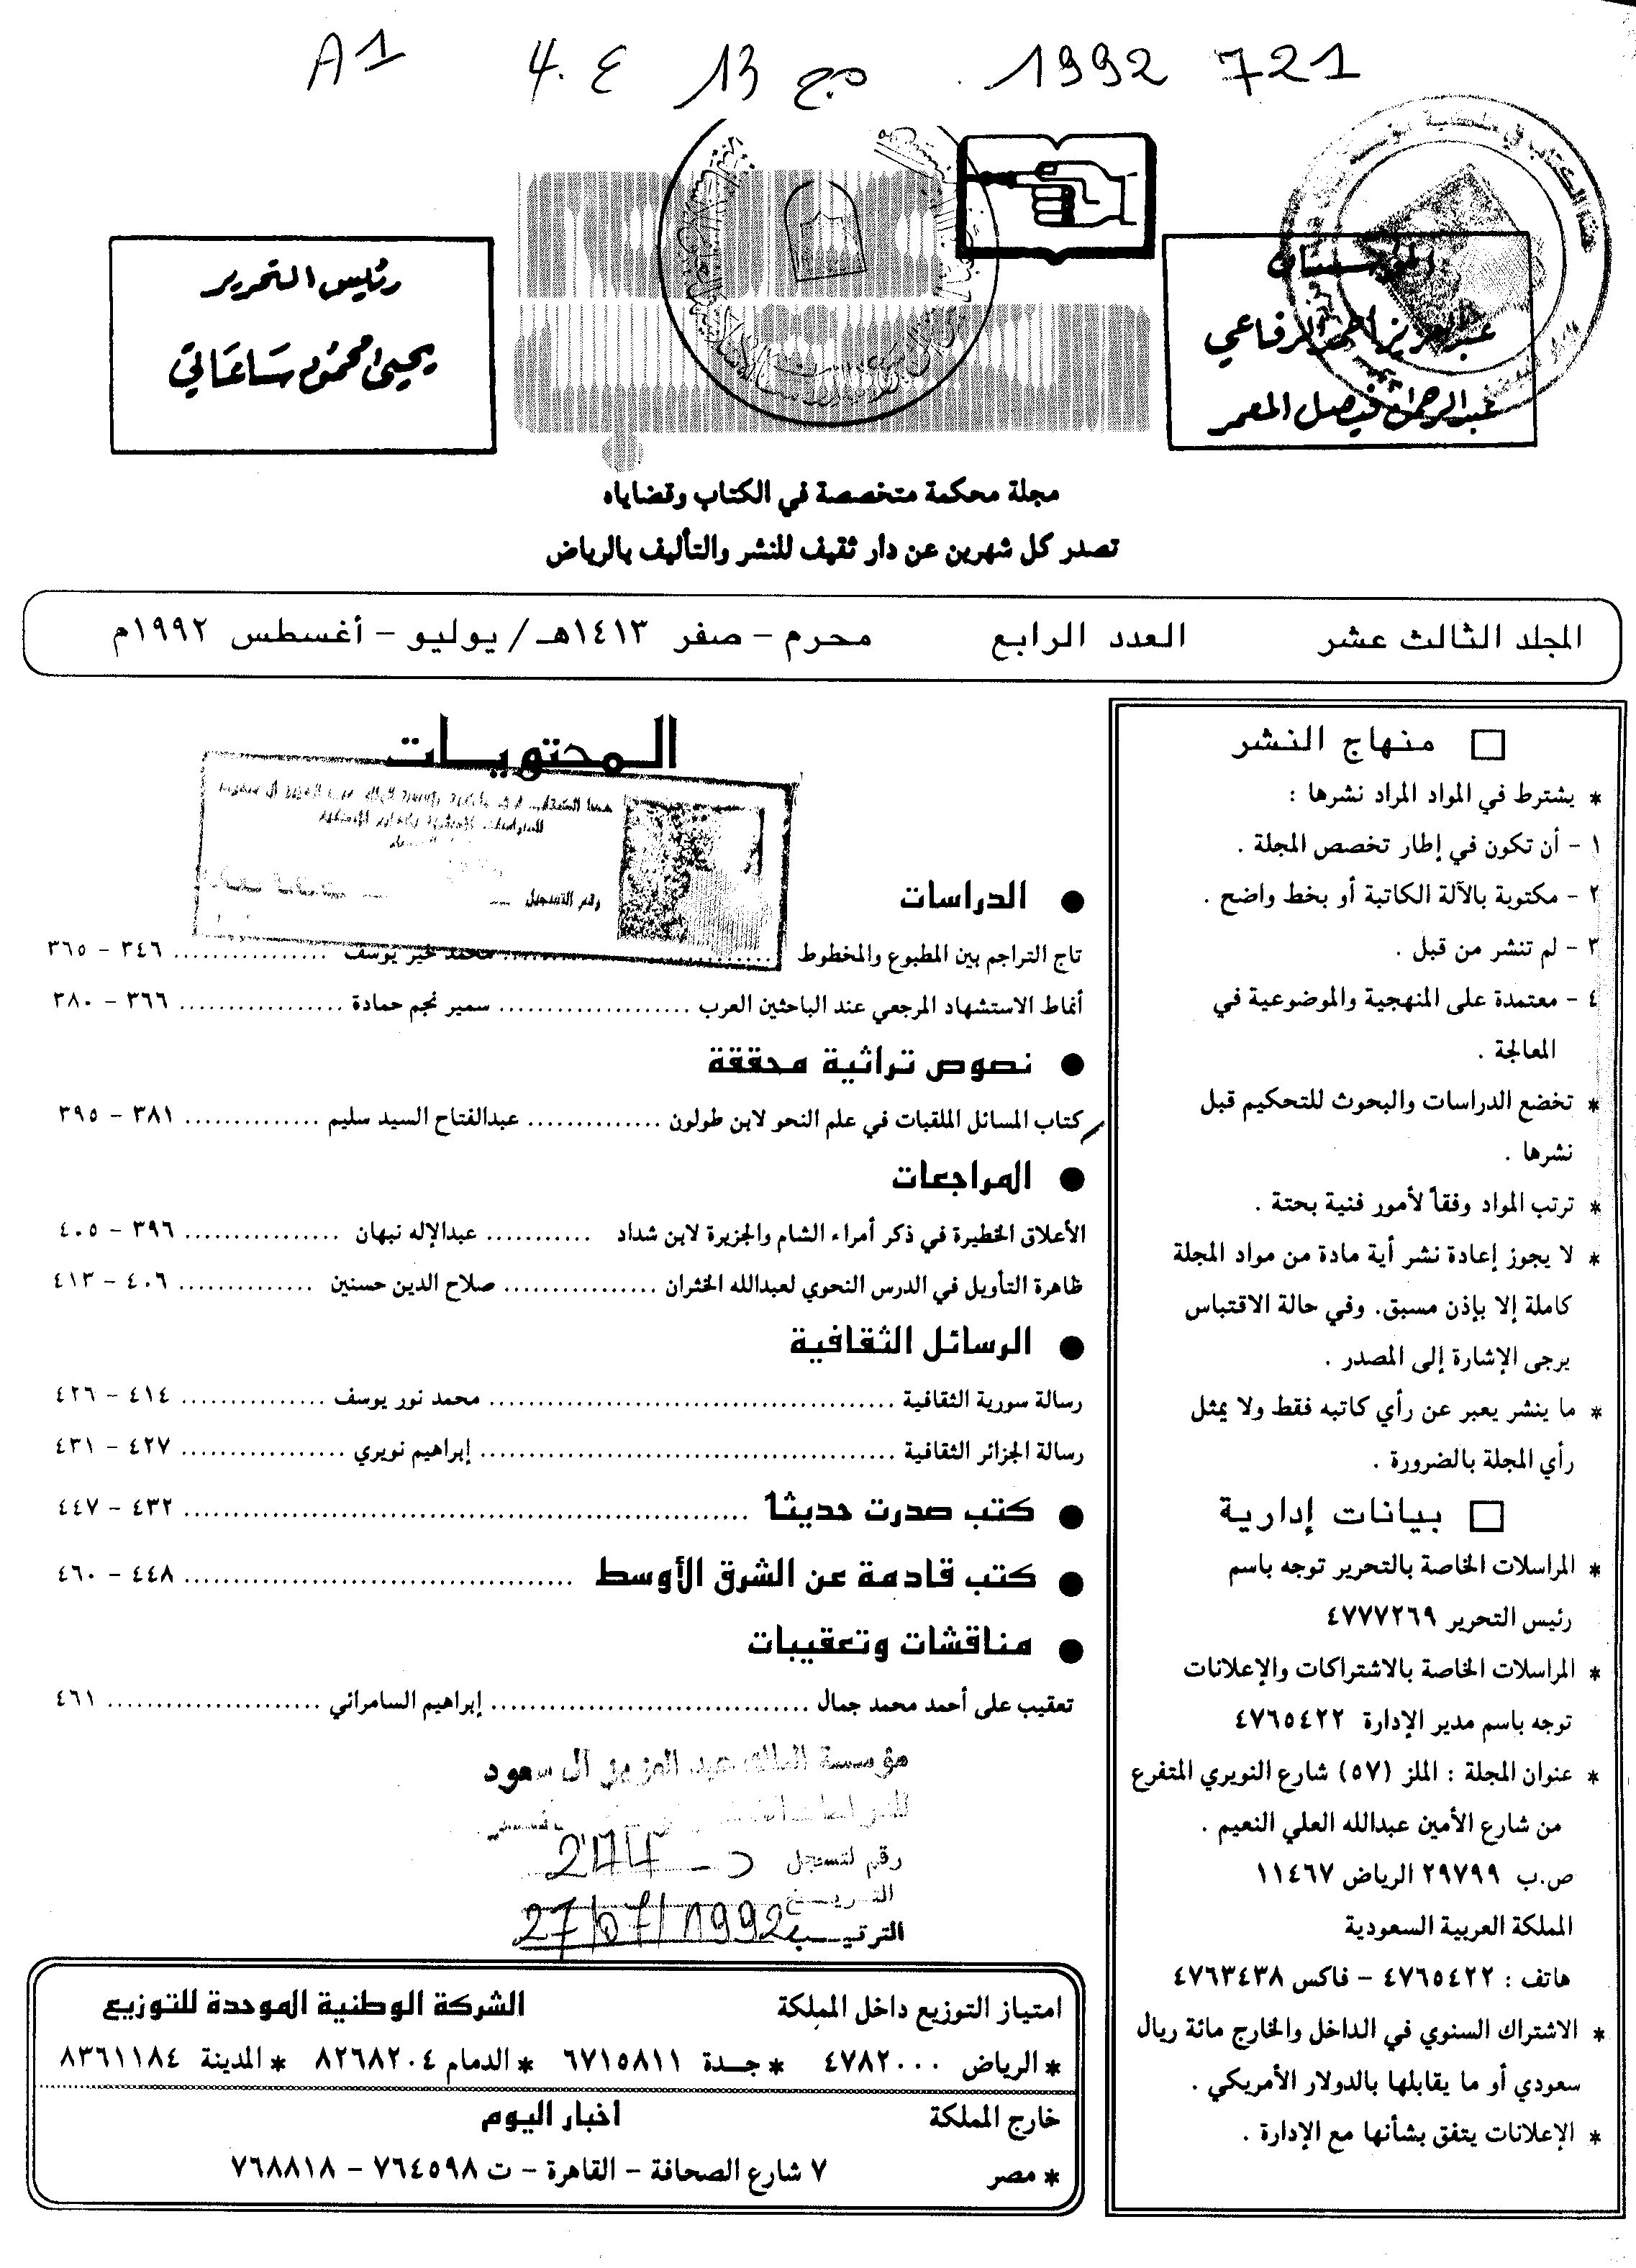 A1 4. ع 13 مج 1992 721
المؤسسان
عبدالعزيز أحمد الرفاعي
عبدالرحمن فيصل المعمر
رئيس التحرير
يحيى محمود ساعاتي
مجلة محكمة متخصصة في الكتاب وقضاياه
تصدر كل شهرين عن دار ثقيف للنشر والتأليف بالرياض
المجلد الثالث عشر العدد الرابع محرم - صفر ١٤١٣هـ / يوليو - أغسطس ١٩٩٢م
□ منهاج النشر
* يشترط في المواد المراد نشرها :
١ - أن تكون في إطار تخصص المجلة .
٢ - مكتوبة بالآلة الكاتبة أو بخط واضح .
٣ - لم تنشر من قبل .
٤ - معتمدة على المنهجية والموضوعية في
المعالجة .
* تخضع الدراسات والبحوث للتحكيم قبل
نشرها .
* ترتب المواد وفقاً لأمور فنية بحتة .
* لا يجوز إعادة نشر أية مادة من مواد المجلة
كاملة إلا بإذن مسبق. وفي حالة الاقتباس
يرجى الإشارة إلى المصدر .
* ما ينشر يعبر عن رأي كاتبه فقط ولا يمثل
رأي المجلة بالضرورة .
□ بيانات إدارية
* المراسلات الخاصة بالتحرير توجه باسم
رئيس التحرير ٤٧٧٧٢٦٩
* المراسلات الخاصة بالاشتراكات والإعلانات
توجه باسم مدير الإدارة ٤٧٦٥٤٢٢
* عنوان المجلة : الملز (٥٧) شارع النويري المتفرع
من شارع الأمين عبدالله العلي النعيم .
ص.ب ٢٩٧٩٩ الرياض ١١٤٦٧
المملكة العربية السعودية
هاتف : ٤٧٦٥٤٢٢ - فاكس ٤٧٦٣٤٣٨
* الاشتراك السنوي في الداخل والخارج مائة ريال
سعودي أو ما يقابلها بالدولار الأمريكي .
* الإعلانات يتفق بشأنها مع الإدارة .
المحتويات
رقم التسجيل
● الدراسات
تاج التراجم بين المطبوع والمخطوط ........ محمد خير يوسف ........ ٣٤٦ - ٣٦٥
أنماط الاستشهاد المرجعي عند الباحثين العرب ........ سمير نجم حمادة ........ ٣٦٦ - ٣٨٠
● نصوص تراثية محققة
كتاب المسائل الملقبات في علم النحو لابن طولون ........ عبدالفتاح السيد سليم ........ ٣٨١ - ٣٩٥
● المراجعات
الأعلاق الخطيرة في ذكر أمراء الشام والجزيرة لابن شداد ........ عبدالإله نبهان ........ ٣٩٦ - ٤٠٥
ظاهرة التأويل في الدرس النحوي لعبدالله الخثران ........ صلاح الدين حسنين ........ ٤٠٦ - ٤١٣
● الرسائل الثقافية
رسالة سورية الثقافية ........ محمد نور يوسف ........ ٤١٤ - ٤٢٦
رسالة الجزائر الثقافية ........ إبراهيم نويري ........ ٤٢٧ - ٤٣١
● كتب صدرت حديثاً ........ ٤٣٢ - ٤٤٧
● كتب قادمة عن الشرق الأوسط ........ ٤٤٨ - ٤٦٠
● مناقشات وتعقيبات
تعقيب على أحمد محمد جمال ........ إبراهيم السامرائي ........ ٤٦١
مؤسسة الملك عبد العزيز آل سعود
رقم لتسجل د - 244
التريـخ
27/07/1992
الترتيـب
امتياز التوزيع داخل المملكة الشركة الوطنية الموحدة للتوزيع
* الرياض ٤٧٨٢٠٠٠ * جـدة ٦٧١٥٨١١ * الدمام ٨٢٦٨٢٠٤ * المدينة ٨٣٦١١٨٤
خارج المملكة أخبار اليوم
* مصر ٧ شارع الصحافة - القاهرة - ت ٧٦٤٥٩٨ - ٧٦٨٨١٨